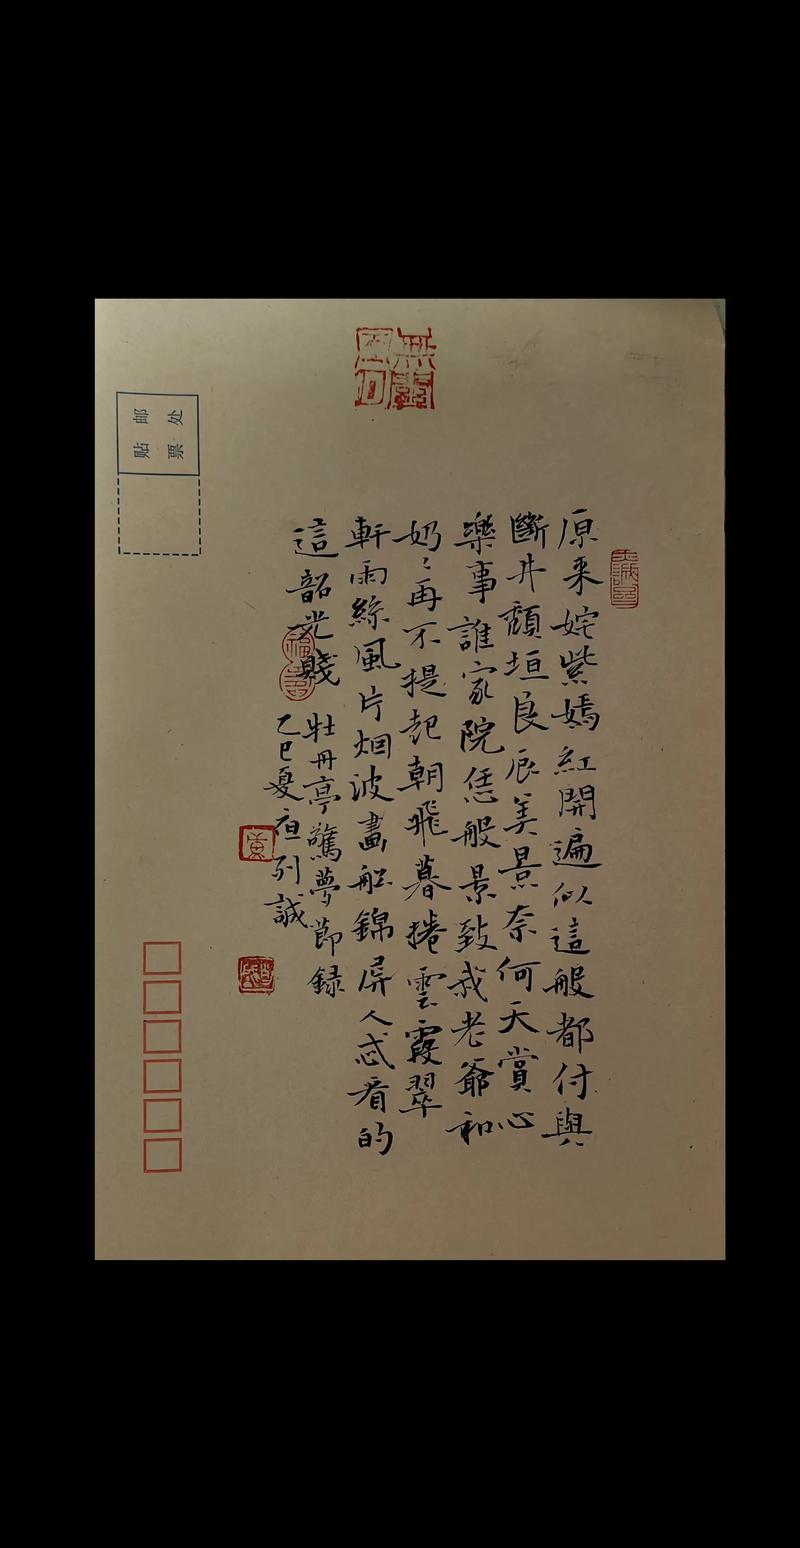 原来姹紫嫣紅開遍似這般都付與
斷井頹垣良辰美景奈何天賞心
樂事誰家院恁般景致我老爺和
奶〻再不提起朝飛暮捲雲霞翠
軒雨絲風片烟波畫船錦屏人忒看的
這韶光賤
牡丹亭驚夢節録
乙巳夏夜列誠
福壽
贴邮
票处